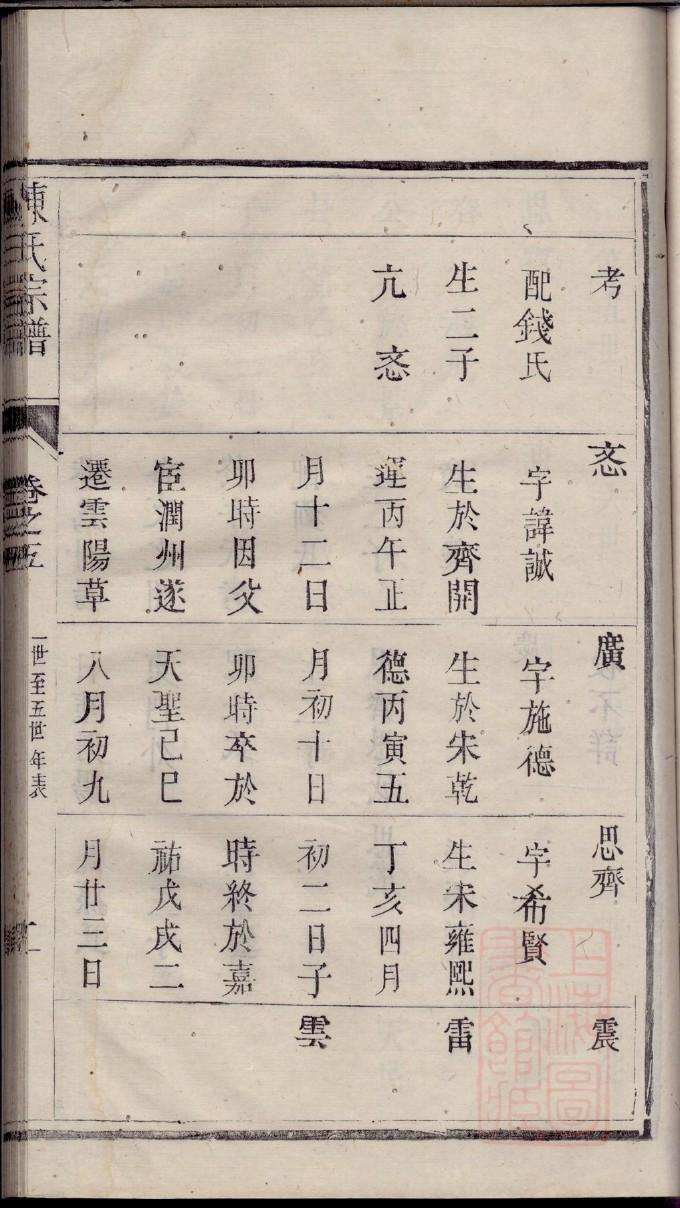 考
配錢氏
生二子
亢 忞
忞
字諱誠
生於齊開
運丙午正
月十二日
卯時因父
宦潤州遂
遷雲陽草
廣
字施德
生於宋乾
德丙寅五
月初十日
卯時卒於
天聖己巳
八月初九
思齊
字希賢
生宋雍熙
丁亥四月
初二日子
時終於嘉
祐戊戌二
月廿三日
震
雷
雲
陳氏宗譜
卷之五
一世至五世年表
上海圖書館藏